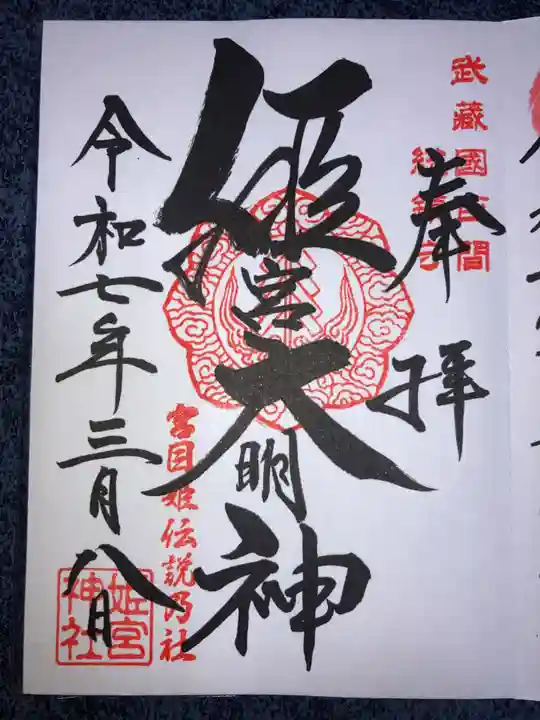 武藏國百間
総鎮守
奉拝
姫宮大明神
宮目姫伝説乃社
令和七年三月八日
姫宮
神社